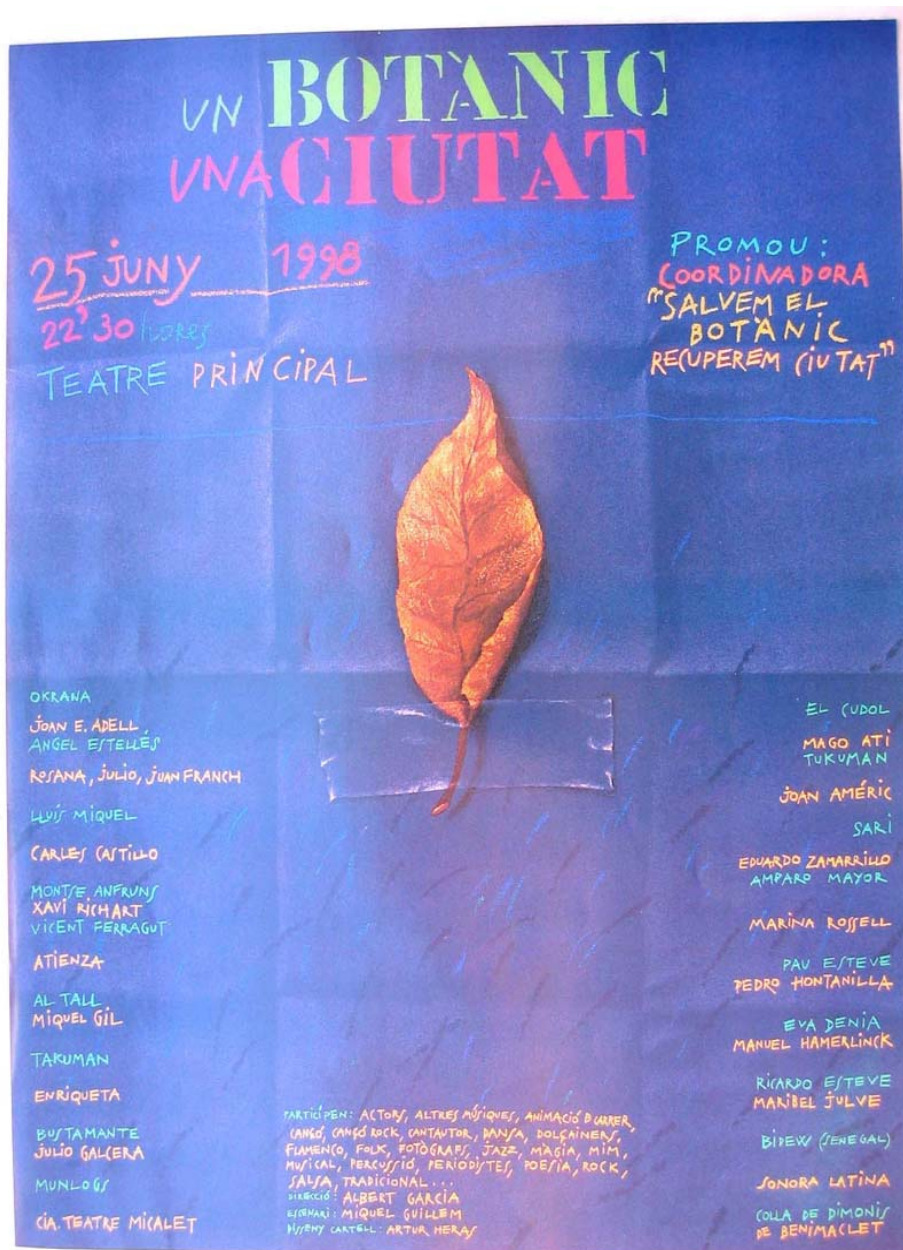 UN BOTÀNIC
UNA CIUTAT
25 JUNY 1998
22'30 hores
TEATRE PRINCIPAL
PROMOU:
COORDINADORA
"SALVEM EL
BOTÀNIC
RECUPEREM CIUTAT"
OKRANA
JOAN E. ADELL
ANGEL ESTELLÉS
ROSANA, JULIO, JUAN FRANCH
LLUÍS MIQUEL
CARLES CASTILLO
MONTSE ANFRUNS
XAVI RICHART
VICENT FERRAGUT
ATIENZA
AL TALL
MIQUEL GIL
TAKUMAN
ENRIQUETA
BUSTAMANTE
JULIO GALCERA
MUNLOGS
CIA. TEATRE MICALET
EL CUDOL
MAGO ATI
TUKUMAN
JOAN AMÉRIC
SARI
EDUARDO ZAMARRILLO
AMPARO MAYOR
MARINA ROSSELL
PAU ESTEVE
PEDRO HONTANILLA
EVA DENIA
MANUEL HAMERLINCK
RICARDO ESTEVE
MARIBEL JULVE
BIDEW (SENEGAL)
SONORA LATINA
COLLA DE DIMONIS
DE BENIMACLET
PARTICIPEN: ACTORS, ALTRES MÚSIQUES, ANIMACIÓ D CARRER,
CANÇÓ, CANÇÓ ROCK, CANTAUTOR, DANSA, DOLÇAINERS,
FLAMENCO, FOLK, FOTÒGRAFS, JAZZ, MÀGIA, MIM,
MUSICAL, PERCUSSIÓ, PERIODISTES, POESIA, ROCK,
SALSA, TRADICIONAL...
DIRECCIÓ: ALBERT GARCIA
ESCENARI: MIQUEL GUILLEM
DISSENY CARTELL: ARTUR HERAS